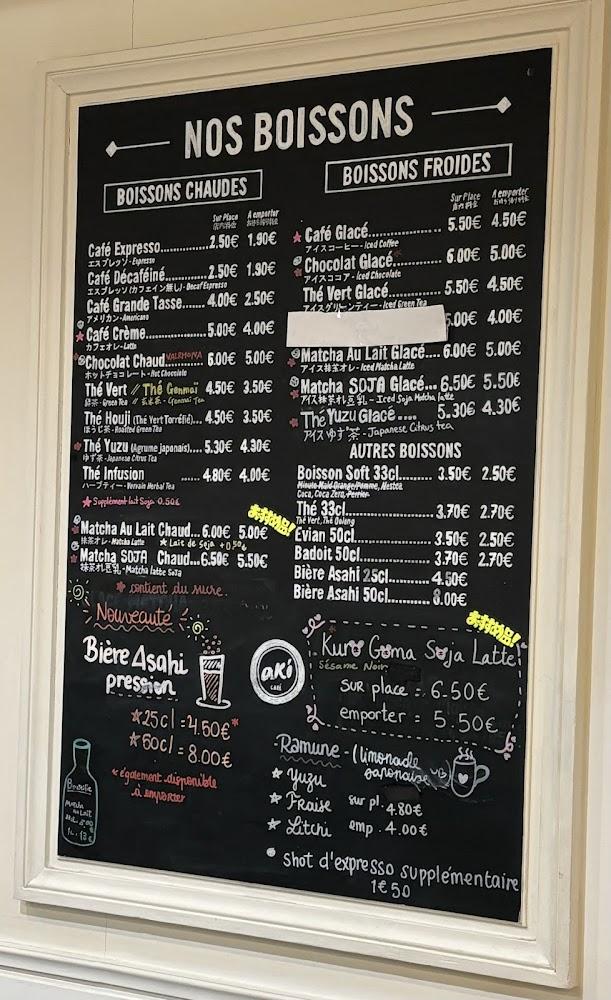 NOS BOISSONS
BOISSONS CHAUDES
Sur Place A emporter
Café Expresso 2.50€ 1.90€
エスプレッソ - Espresso
Café Décaféiné 2.50€ 1.90€
エスプレッソ (カフェイン無し) - Decaf Espresso
Café Grande Tasse 4.00€ 2.50€
アメリカン - Americano
Café Crème 5.00€ 4.00€
カフェオレ - Latte
Chocolat Chaud VALRHONA 6.00€ 5.00€
ホットチョコレート - Hot Chocolate
Thé Vert // Thé Genmaï 4.50€ 3.50€
Green Tea // 玄米茶 - Genmai Tea
Thé Houji (Thé Vert Torréfié) 4.50€ 3.50€
ほうじ茶 - Roasted Green Tea
Thé Yuzu (Agrume japonais) 5.30€ 4.30€
ゆず茶 - Japanese Citrus Tea
Thé Infusion 4.80€ 4.00€
ハーブティー - Vervain Herbal Tea
Supplément lait Soja 0.50€
おすすめ品!
Matcha Au Lait Chaud 6.00€ 5.00€
抹茶オレ - Matcha Latte ★ Lait de Soja +0.50€
Matcha SOJA Chaud 6.50€ 5.50€
抹茶オレ豆乳 - Matcha latte Soja
* contient du sucre
Nouveauté
Bière Asahi
pression
☆ 25cl = 4.50€*
☆ 50cl = 8.00€
* également disponible
à emporter
Matcha
au Lait
BOISSONS FROIDES
Sur Place A emporter
Café Glacé 5.50€ 4.50€
アイスコーヒー - Iced Coffee
Chocolat Glacé 6.00€ 5.00€
アイスココア - Iced Chocolate
Thé Vert Glacé 5.50€ 4.50€
アイスグリーンティー - Iced Green Tea
5.00€ 4.00€
Matcha Au Lait Glacé 6.00€ 5.00€
アイス抹茶オレ - Iced Matcha Latte
Matcha SOJA Glacé 6.50€ 5.50€
アイス抹茶オレ豆乳 - Iced Soja Matcha latte
Thé Yuzu Glacé 5.30€ 4.30€
アイスゆず茶 - Japanese Citrus tea
AUTRES BOISSONS
Boisson Soft 33cl 3.50€ 2.50€
Minute Maid Orange/Pomme, Nestea
Coca, Coca Zero, Perrier
Thé 33cl 3.70€ 2.70€
Thé Vert, Thé Oolong
Evian 50cl 3.50€ 2.50€
Badoit 50cl 3.70€ 2.70€
Bière Asahi 25cl 4.50€
Bière Asahi 50cl 8.00€
おすすめ品!
Kuro Goma Soja Latte
Sésame Noir
sur place = 6.50€
emporter = 5.50€
aki
café
Ramune - (limonade
japonaise)
★ Yuzu
★ Fraise sur pl. 4.80€
★ Litchi emp. 4.00€
shot d'expresso supplémentaire
1€50